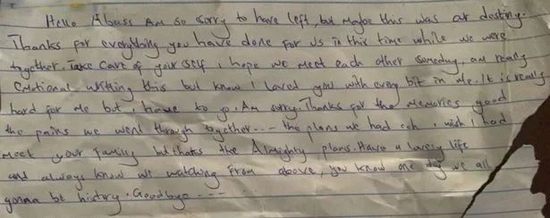 Hello Abuss Am so sorry to have left but maybe this was our destiny.
Thanks for everything you have done for us in this time while we were
together. Take care of your self, i hope we meet each other someday, am really
emotional writting this but know I loved you with every bit in me, It is really
hard for me but i have to go. Am sorry. Thanks for the memories good
the pains we went through together... the plans we had i wish I had
meet your family but thats the Almighty plans. Have a lovely life
and always know we watching from above, you know one day we all
gonna be history. Goodbye ...